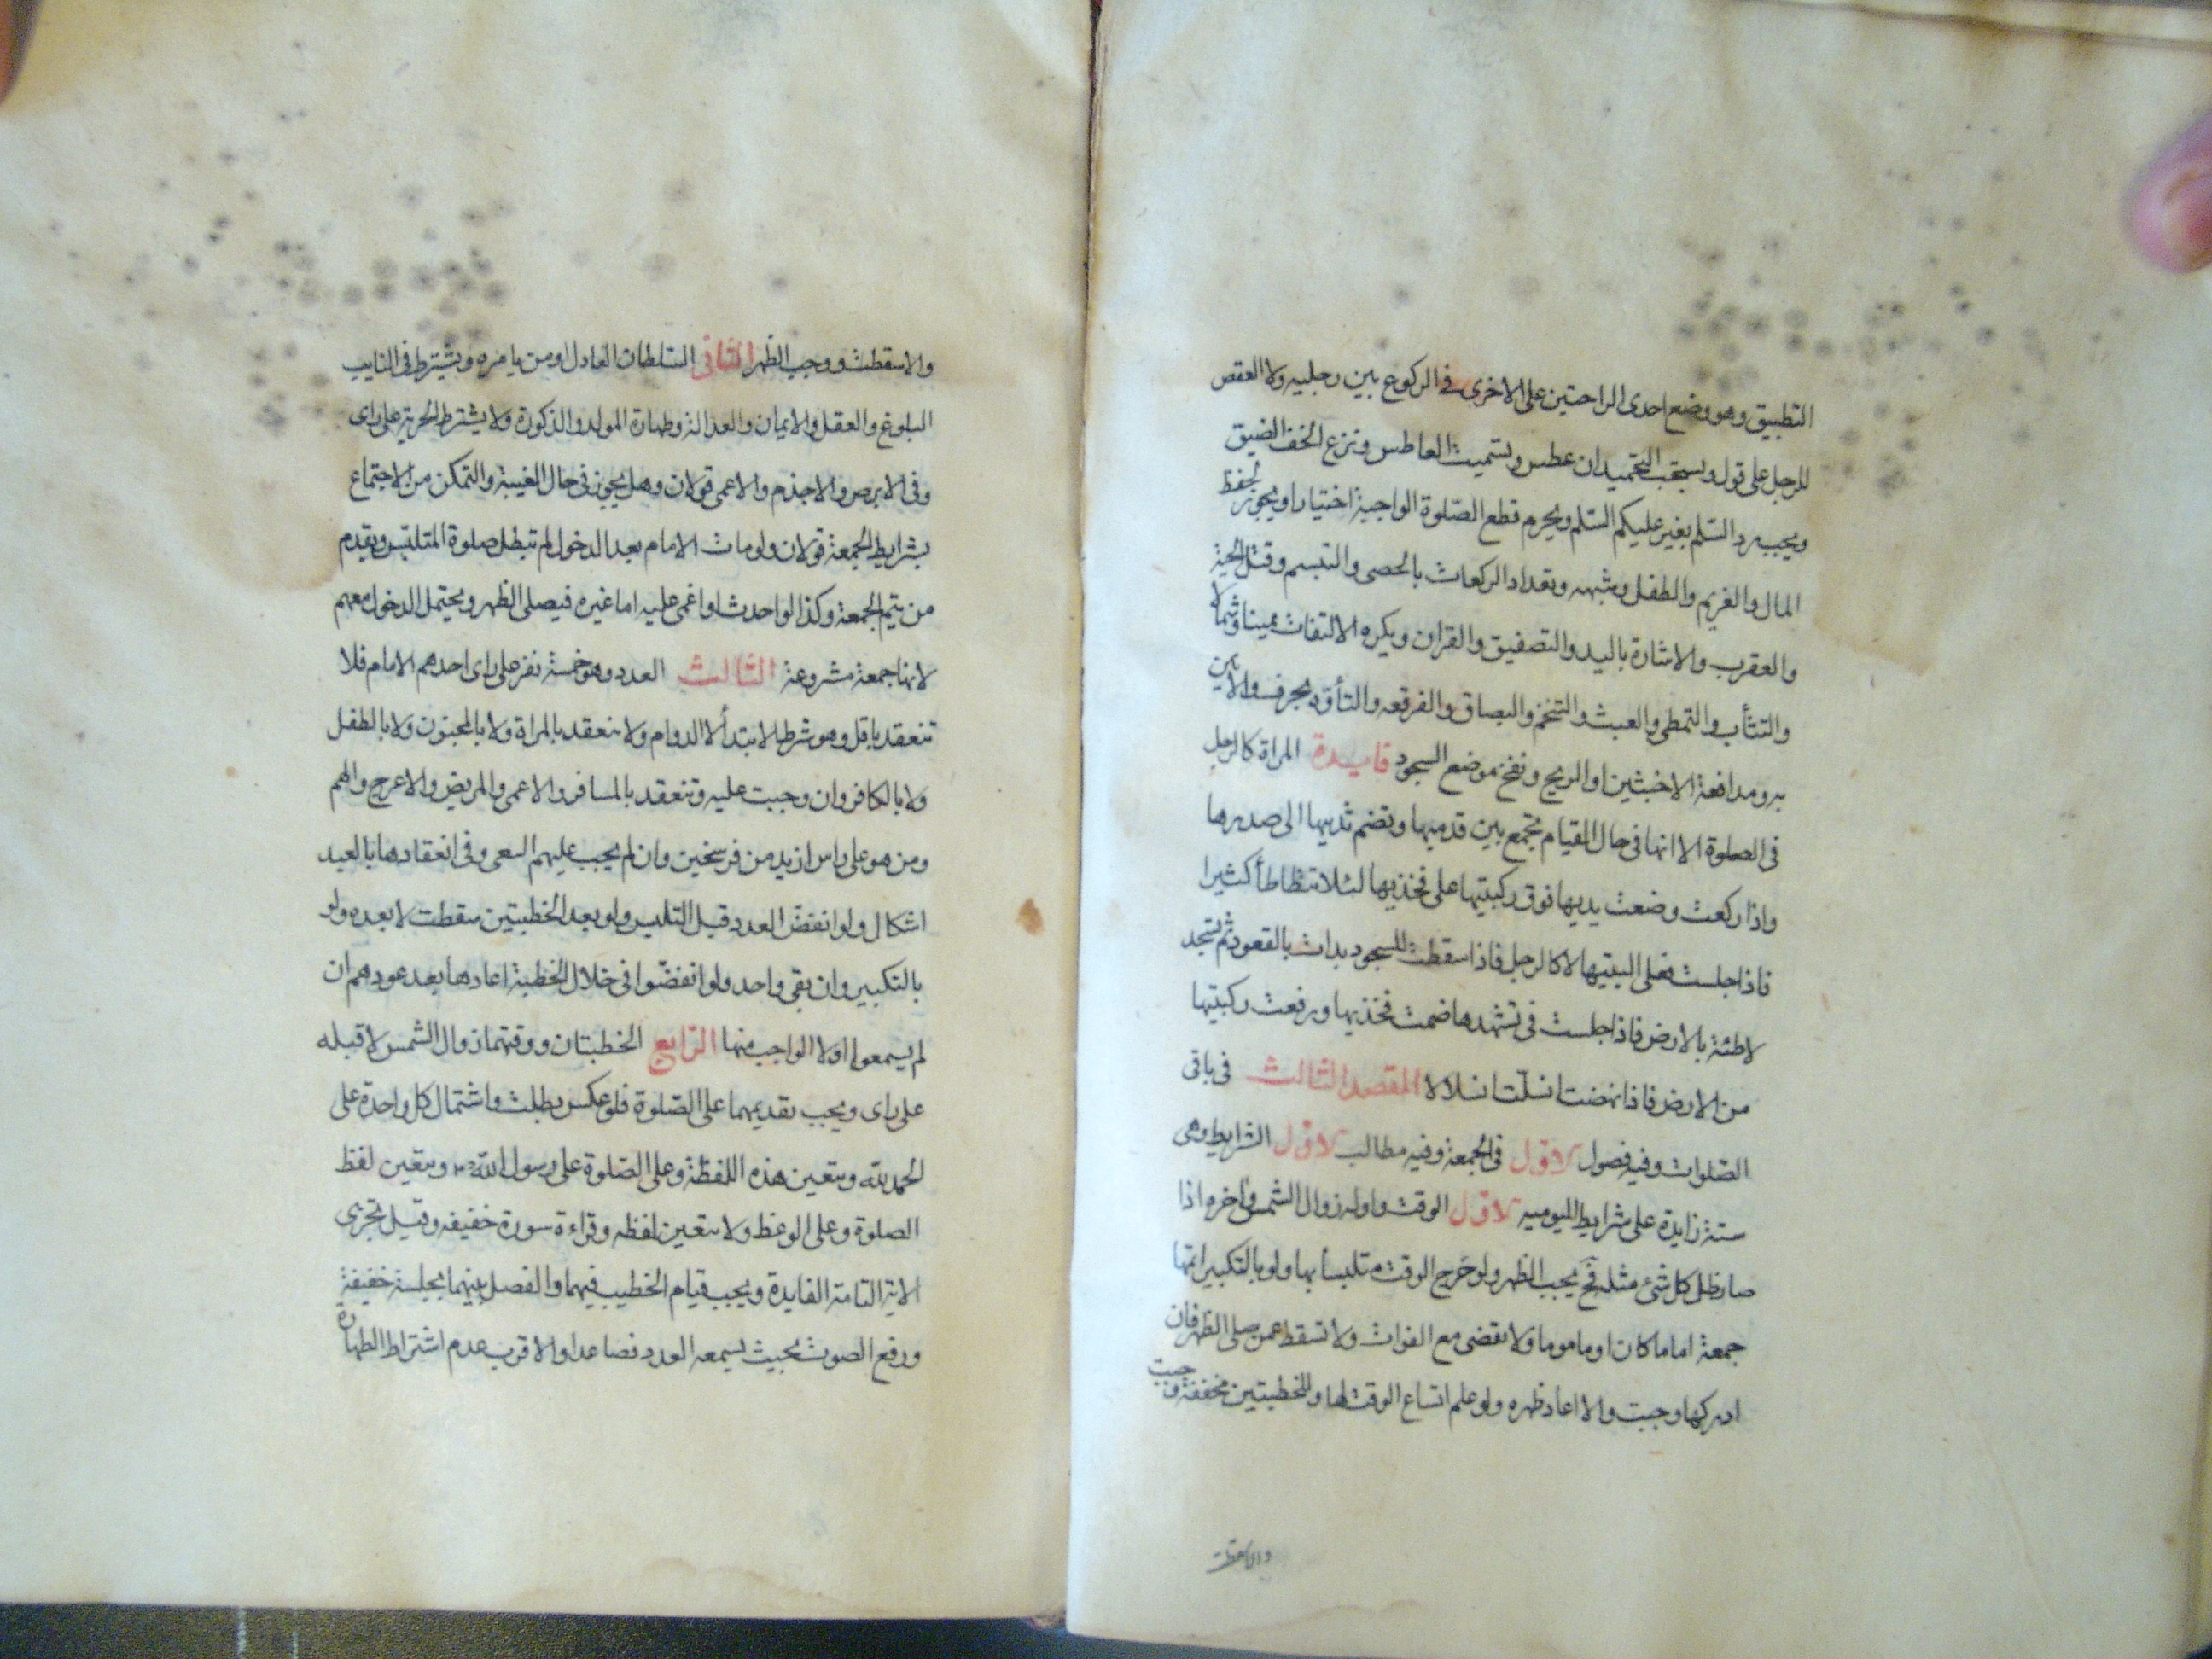 التطبيق وهو وضع احدى الراحتين على الاخرى في الركوع بين رجليه ولا العقص
للرجل على قول ويستحب التحميد ان عطس وتسميت العاطس ونزع الخف الضيق
ويجب رد السلم بغير عليكم السلم ويحرم قطع الصلوة الواجبة اختيارا ويجوز لحفظ
المال والغريم والطفل وشبهه وتعداد الركعات بالحصى والتبسم وقتل الحية
والعقرب والاشارة باليد والتصفيق والقران ويكره الالتفات يمينا وشمالا
والتثأب والتمطي والعبث والتنخم والبصاق والفرقعه والتأوه بحرف والانين
به ومدافعة الاخبثين او الريح ونفخ موضع السجود فايدة المراة كالرجل
فى الصلوة الا انها فى حال القيام تجمع بين قدميها وتضم ثدييها الى صدرها
واذا ركعت وضعت يديها فوق ركبتيها على فخذيها لئلا تتطاطأ كثيرا
فاذا جلست فعلى اليتيها لا كالرجل فاذا سقطت للسجود بدات بالقعود ثم تسجد
لاطئة بالارض فاذا جلست فى تشهدها ضمت فخذيها ورفعت ركبتيها
من الارض فاذا نهضت انسلت انسلالا المقصد الثالث فى باقى
الصلوات وفيه فصول الاول فى الجمعة وفيه مطالب الاول الشرايط وهى
ستة زايدة على شرايط اليوميه الاول الوقت واوله زوال الشمس واخره اذا
صار ظل كل شئ مثله فح يجب الظهر ولو خرج الوقت متلبسا بها ولو بالتكبير اتمها
جمعة اماما كان او ماموما ولا تقضى مع الفوات ولا تسقط عمن صلى الظهر فان
ادركها وجبت والا اعاد ظهره ولو علم اتساع الوقت لها وللخطبتين مخففة وجبت
والاسقطت
والاسقطت ووجب الظهر الثانى السلطان العادل او من يامره ويشترط فى النايب
البلوغ والعقل والايمان والعدالة وطهارة المولد والذكورة ولا يشترط الحرية على راى
وفى الابرص والاجذم والاعمى قولان وهل يجوز فى حال الغيبة والتمكن من الاجتماع
بشرايط الجمعة قولان ولو مات الامام بعد الدخول لم تبطل صلوة المتلبس ويقدم
من يتم الجمعة وكذا لو احدث او اغمى عليه اما غيره فيصلى الظهر ويحتمل الدخول معهم
لانها جمعة مشروعة الثالث العدد وهو خمسة نفر على راى احدهم الامام فلا
تنعقد باقل وهو شرط الابتدأ لا الدوام ولا تنعقد بالمراة ولا بالمجنون ولا بالطفل
ولا بالكافر وان وجبت عليه وتنعقد بالمسافر والاعمى والمريض والاعرج والهم
ومن هو على راس ازيد من فرسخين وان لم يجب عليهم السعى وفى انعقادها بالعبد
اشكال ولو انفض العدد قبل التلبس ولو بعد الخطبتين سقطت لا بعده ولو
بالتكبير وان بقى واحد ولو انفضوا فى خلال الخطبة اعادها بعد عودهم ان
لم يسمعوا اولا الواجب منها الرابع الخطبتان ووقتهما زوال الشمس لا قبله
على راى ويجب تقديمهما على الصلوة فلو عكس بطلت واشتمال كل واحدة على
الحمد لله ويتعين هذه اللفظة وعلى الصلوة على رسول الله ويتعين لفظ
الصلوة وعلى الوعظ ولا يتعين لفظه وقراءة سورة خفيفه وقيل تجزى
الاية التامة الفايدة ويجب قيام الخطيب فيهما والفصل بينهما بجلسة خفيفة
ورفع الصوت بحيث يسمعه العدد فصاعدا والاقرب عدم اشتراط الطهارة